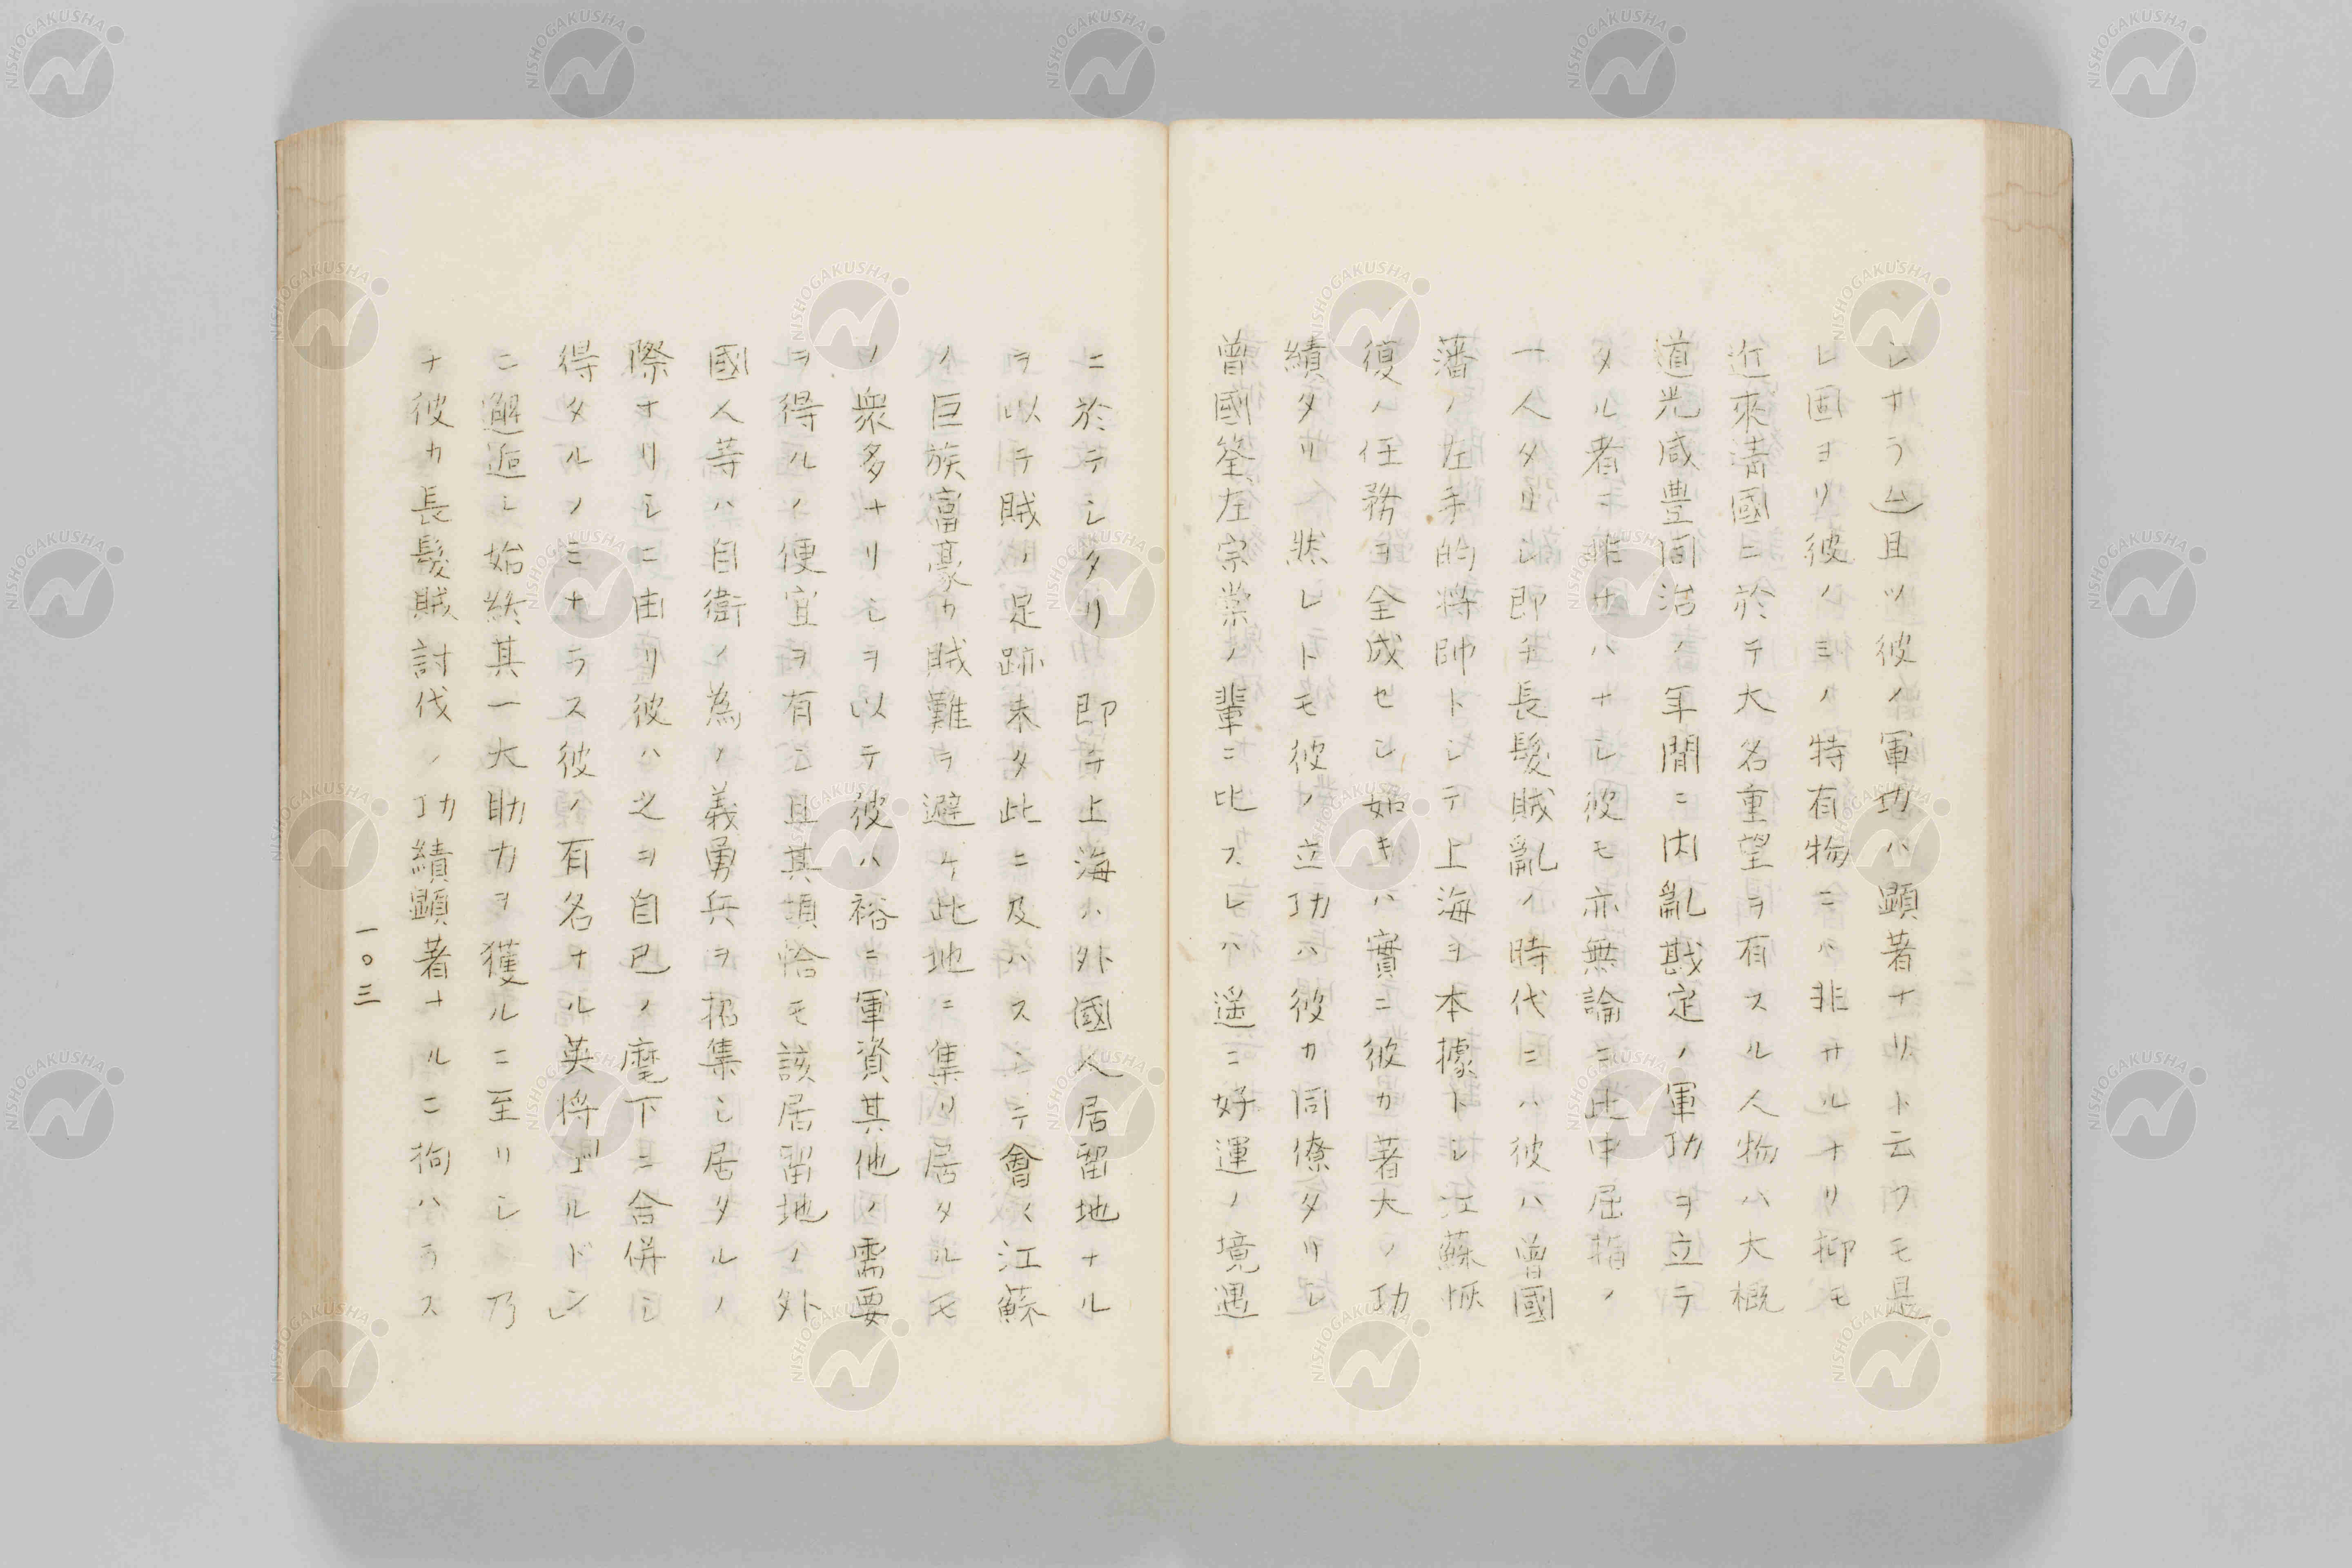 レサラム且ツ彼ノ軍功ハ顕著ナリト云フモ是
レ固ヨリ彼ノミノ特有物ニハ非サルナリ抑モ
近來淸國ニ於テ大名重望ヲ有スル人物ハ大槪
道光咸豊同治ノ年間ニ内亂戡定ノ軍功ヲ立テ
タル者ニ非サハナシ彼モ亦無論ニ此中屈指ノ
一人タリシ即チ長髮賊亂ノ時代ニハ彼ハ曾國
藩ノ左手的將帥トシテ上海ヲ本據トシ江蘇恢
復ノ任務ヲ全成セシ如キハ實ニ彼カ著大ノ功
績タリ然レトモ彼ノ立功ハ彼カ同僚タリシ
曾國筌左宗棠ノ輩ニ比スレハ遥ニ好運ノ境遇
ニ於テシタリ 即チ上海ハ外國人居留地ナル
ヲ以テ賊ノ足跡未タ此ニ及ハスシテ會〻江蘇
ノ巨族富豪カ賊難ヲ避ケ此地ニ集リ居タルモ
ノ衆多ナリシヲ以テ彼ハ裕ニ軍資其他ノ需要
ヲ得ルノ便宜ヲ有シ且其頃恰モ該居留地ノ外
國人等ハ自衛ノ為ノ義勇兵ヲ招集シ居タルノ
際ナリシニ由リ彼ハ之ヲ自己ノ麾下ニ合併シ
得タルノミナラス彼ノ有名ナル英將ゴルドン
ニ邂逅シ始終其一大助力ヲ獲ルニ至リシ乃
ナ彼カ長髮賊討伐ノ功績顕著ナルニ拘ハラス
一〇三
NISHOGAKUSHA